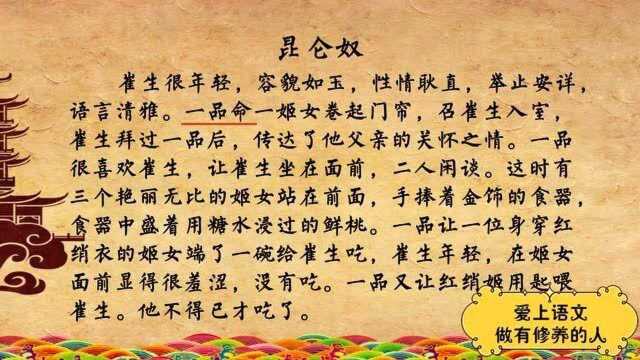 昆仑奴
崔生很年轻，容貌如玉，性情耿直，举止安详，
语言清雅。一品命一姬女卷起门帘，召崔生入室，
崔生拜过一品后，传达了他父亲的关怀之情。一品
很喜欢崔生，让崔生坐在面前，二人闲谈。这时有
三个艳丽无比的姬女站在前面，手捧着金饰的食器，
食器中盛着用糖水浸过的鲜桃。一品让一位身穿红
绡衣的姬女端了一碗给崔生吃，崔生年轻，在姬女
面前显得很羞涩，没有吃。一品又让红绡姬用匙喂
崔生。他不得已才吃了。
爱上语文
做有修养的人